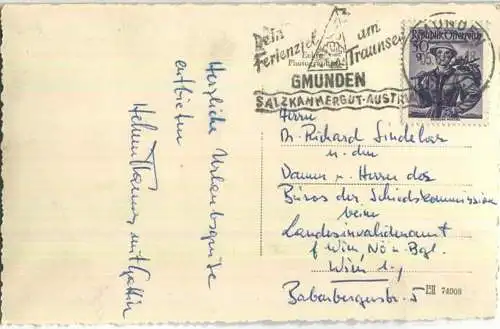 Dein Ferienziel am Traunsee
GMUNDEN
SALZKAMMERGUT-AUSTRIA
GMUNDEN
Republik Österreich
Echte
Photographie
Herzliche Urlaubsgrüße
entbieten
Helmut mit Gattin
Herrn
Dr. Richard Sindelar
u. den
Damen u. Herren des
Büros der Schiedskommission
beim
Landesinvalidenamt
f. Wien, Nö u. Bgl.
Wien 1.,
Babenbergerstr. 5
74008